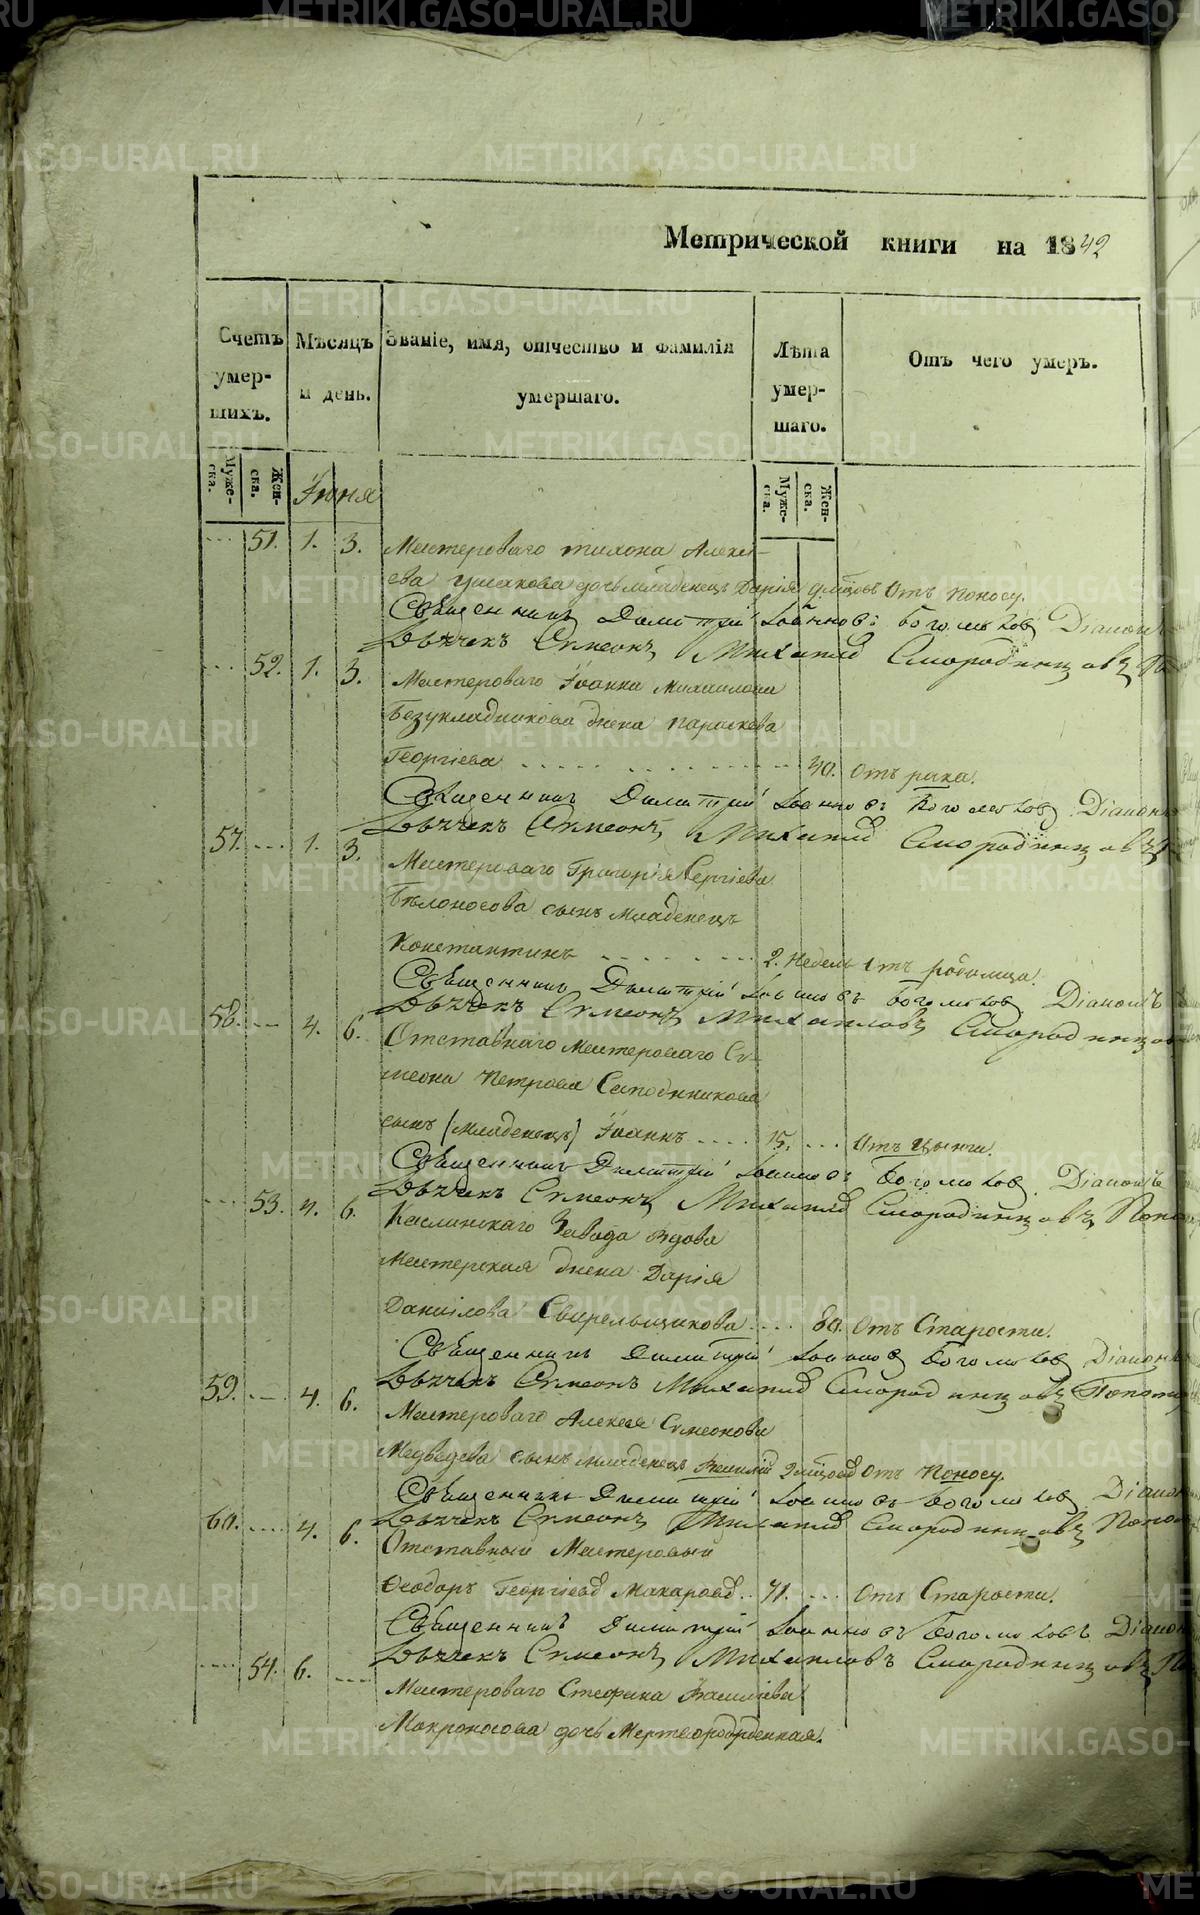 METRIKI.GASO-URAL.RU
Метрической книги на 1842
Счетъ умер- шихъ.
Мѣсяцъ и день.
Званіе, имя, отчество и фамилія умершаго.
Лѣта умер- шаго.
Отъ чего умеръ.
Муже- ска.
Жен- ска.
Іюня
Муже- ска.
Жен- ска.
51. 1. 3. Мастероваго Тихона Алекс-
ева Ушакова дочь младенецъ Дарія 9 мѣцовъ Отъ поносу.
Священникъ Димитрій Іоанновъ Боголюбовъ Діаконъ
Вячек Симеонъ Михайлов Смородинцовъ
52. 1. 3. Мастероваго Іоанна Михаилова
Безукладникова жена Параскева
Георгіева 40. отъ рака.
Священникъ Димитрій Іоанновъ Боголюбов Діаконъ
Симеонъ Михайлов Смородинцовъ
57. 1. 3. Мастероваго Григорія Сергіева
Бѣлоносова сынъ младенецъ
Константинъ 2. недель отъ родимца.
Священникъ Димитрій Іоанновъ Боголюбов Діаконъ
Симеонъ Михайловъ Смородинцов
58. 4. 6. Отставнаго мастероваго Си-
меона Петрова Сапожникова
сынъ (младенецъ) Іоаннъ 15. отъ цынги.
Священникъ Димитрій Іоанновъ Боголюбов. Діаконъ
Симеонъ Михайлов Смородинцовъ
53. 4. 6. Каслинскаго Завода вдова
Мастерская жена Дарія
Даніилова Свирельщикова 80. отъ Старости.
Священникъ Димитрій Іоаннов Боголюбов Діаконъ
Симеонъ Михайлов Смородинцовъ
59. 4. 6. Мастероваго Алексея Симеонова
Медведева сынъ младенецъ Василій 2 мѣцовъ отъ Поносу.
Священникъ Димитрій Іоанновъ Боголюбов Діаконъ
Симеонъ Михайлов Смородинцовъ
60. 4. 6. Отставный Мастеровый
Феодоръ Георгіевъ Макаровъ 71. отъ Старости.
Священникъ Димитрій Іоанновъ Боголюбовъ Діаконъ
Симеонъ Михайловъ Смородинцовъ
54. 6. Мастероваго Стефана Василіева
Мокроносова дочь Мертворожденная.